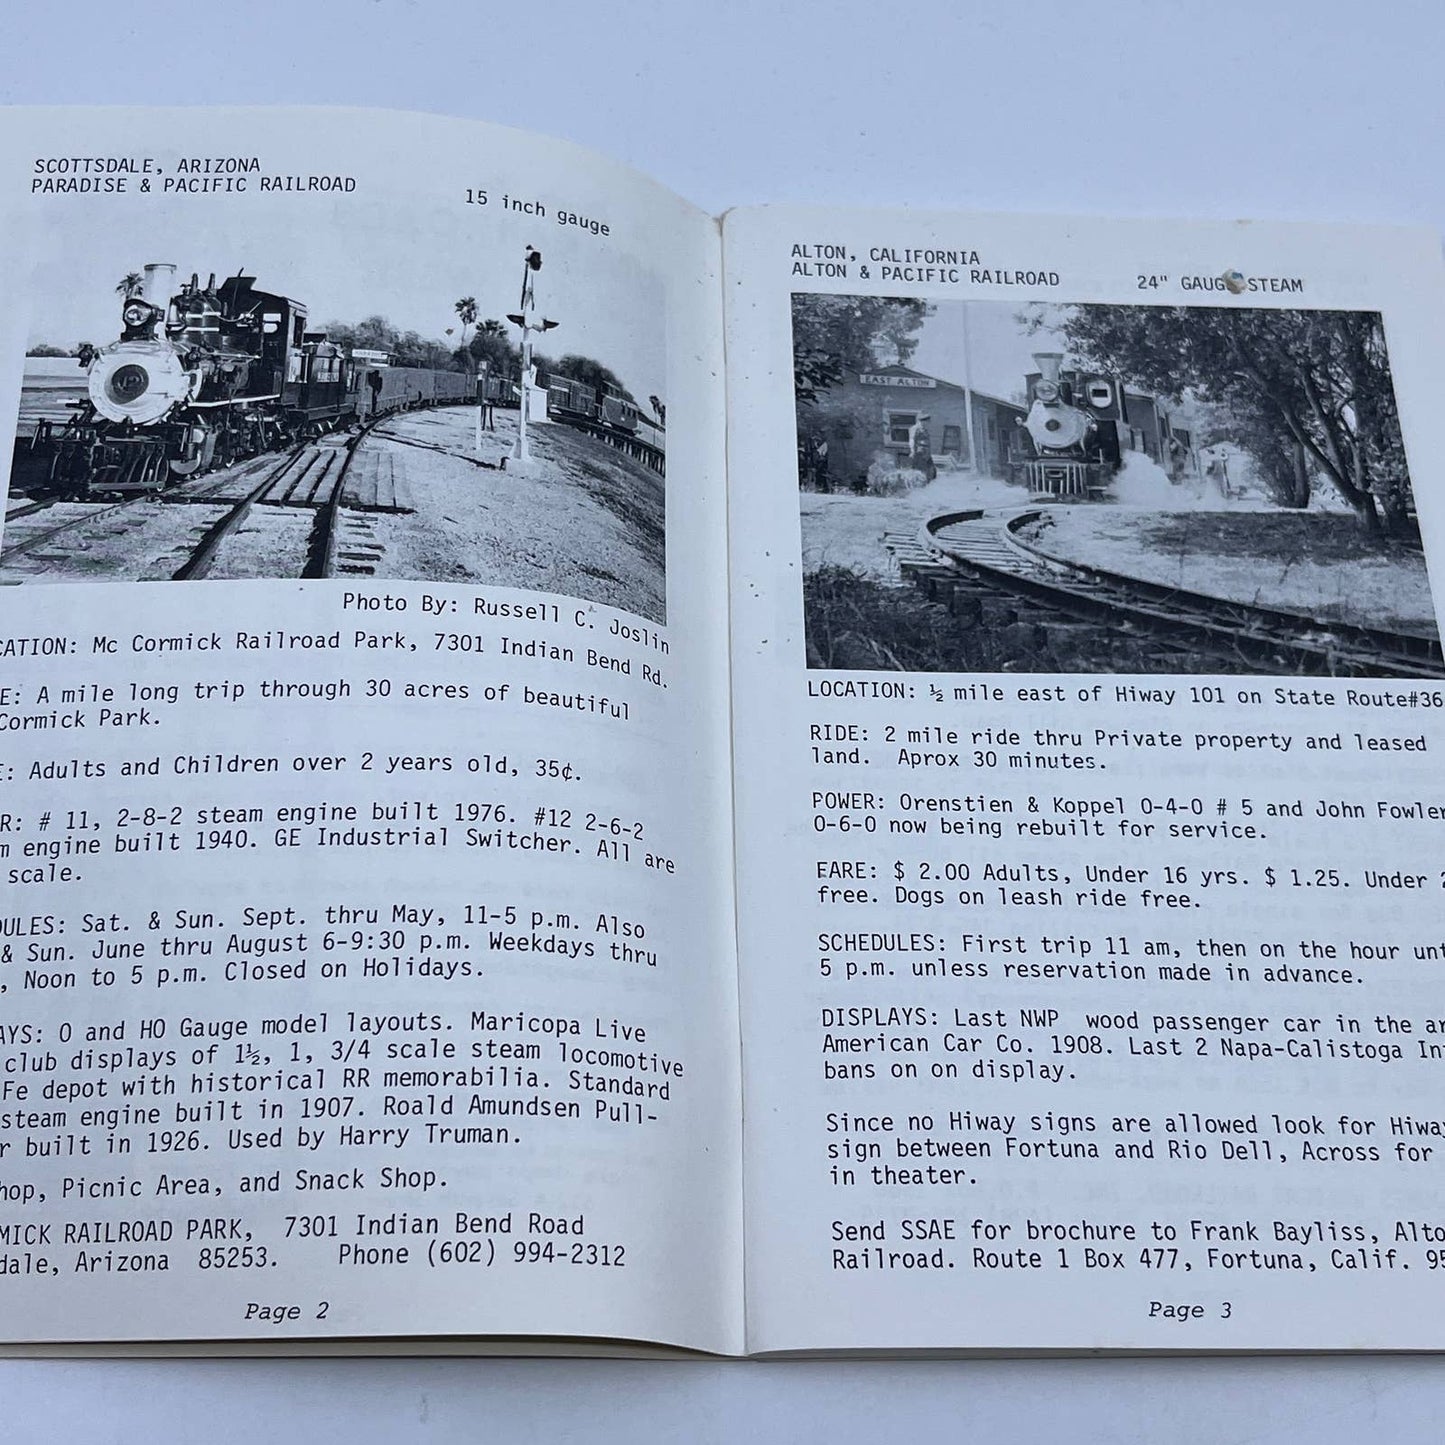 SCOTTSDALE, ARIZONA
PARADISE & PACIFIC RAILROAD
15 inch gauge
Photo By: Russell C. Joslin
CATION: Mc Cormick Railroad Park, 7301 Indian Bend Rd.
E: A mile long trip through 30 acres of beautiful
Cormick Park.
E: Adults and Children over 2 years old, 35¢.
R: # 11, 2-8-2 steam engine built 1976. #12 2-6-2
m engine built 1940. GE Industrial Switcher. All are
scale.
DULES: Sat. & Sun. Sept. thru May, 11-5 p.m. Also
& Sun. June thru August 6-9:30 p.m. Weekdays thru
, Noon to 5 p.m. Closed on Holidays.
AYS: O and HO Gauge model layouts. Maricopa Live
club displays of 1½, 1, 3/4 scale steam locomotive
Fe depot with historical RR memorabilia. Standard
steam engine built in 1907. Roald Amundsen Pull-
r built in 1926. Used by Harry Truman.
hop, Picnic Area, and Snack Shop.
MICK RAILROAD PARK, 7301 Indian Bend Road
dale, Arizona 85253. Phone (602) 994-2312
Page 2
ALTON, CALIFORNIA
ALTON & PACIFIC RAILROAD
24" GAUG STEAM
EAST ALTON
LOCATION: ½ mile east of Hiway 101 on State Route#36
RIDE: 2 mile ride thru Private property and leased
land. Aprox 30 minutes.
POWER: Orenstien & Koppel 0-4-0 # 5 and John Fowler
0-6-0 now being rebuilt for service.
FARE: $ 2.00 Adults, Under 16 yrs. $ 1.25. Under 2
free. Dogs on leash ride free.
SCHEDULES: First trip 11 am, then on the hour unt
5 p.m. unless reservation made in advance.
DISPLAYS: Last NWP wood passenger car in the ar
American Car Co. 1908. Last 2 Napa-Calistoga Int
bans on on display.
Since no Hiway signs are allowed look for Hiway
sign between Fortuna and Rio Dell, Across for
in theater.
Send SSAE for brochure to Frank Bayliss, Alto
Railroad. Route 1 Box 477, Fortuna, Calif. 95
Page 3